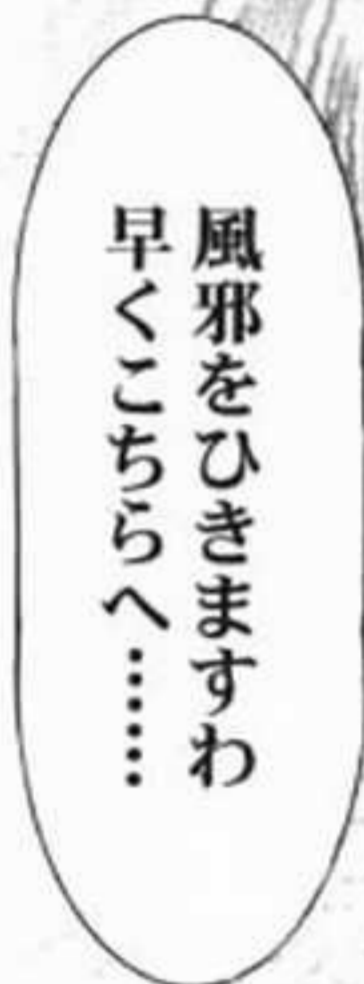 風邪をひきますわ
早くこちらへ……